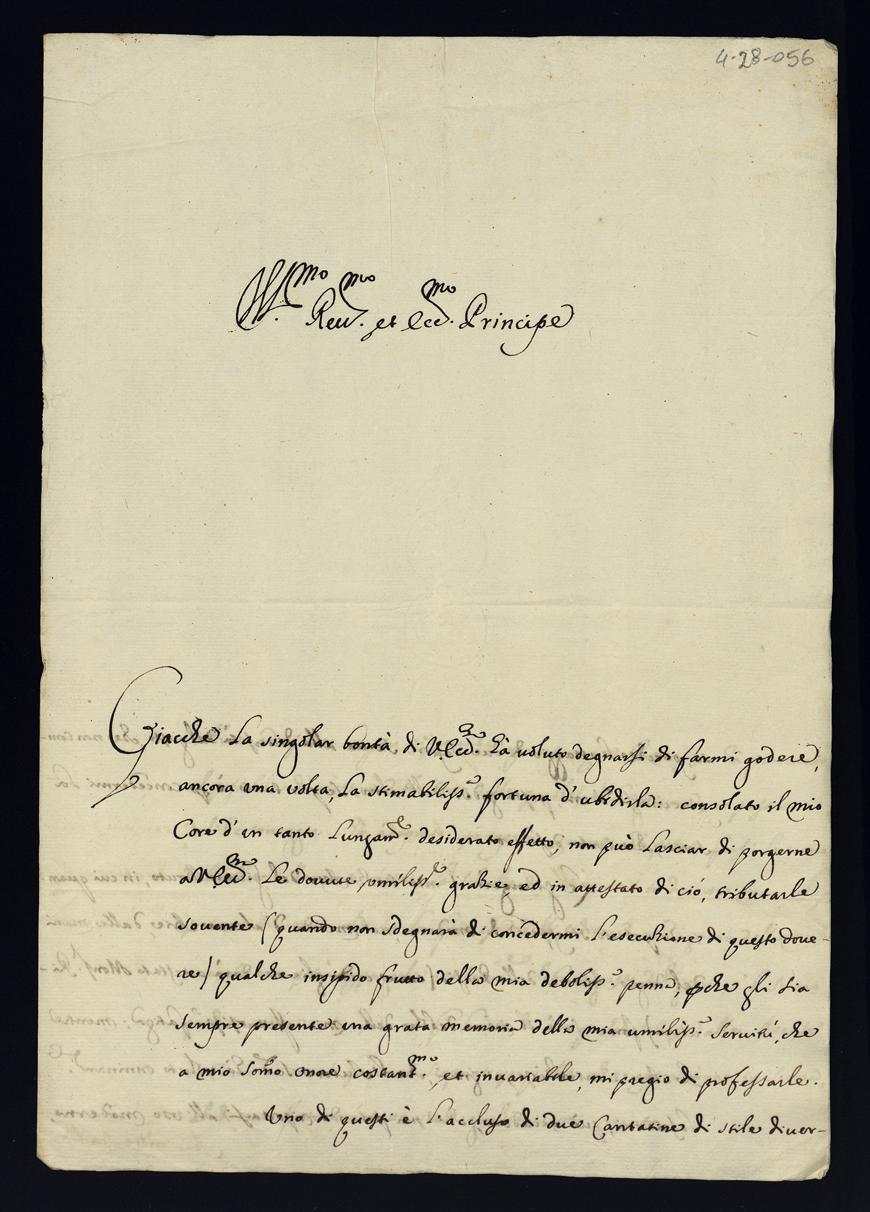 4-28-056
Ill.mo Reu.mo et Ecc.mo Principe
Giacche La singolar bontà di V. Ecc.za hà uoluto degnarsi di farmi godere,
ancora una uolta, La stimabiliss.a fortuna d'ubidirla: consolato il mio
Core d'un tanto Lungam.e desiderato effetto, non può Lasciar di porgerne
a V. Ecc.za Le douute umiliss.e grazie, ed in attestato di ció, tributarle
souente (quando non sdegnarà di concedermi L'esecuzione di questo doue-
re) qualche insipido frutto della mia deboliss.a penna, pche gli sia
sempre presente una grata memoria della mia umiliss.a Seruitú, che
a mio Somo onore costantm.o, et inuariabile, mi pregio di professarle.
Uno di questi è L'accluso di due Cantatine di stile diuer-